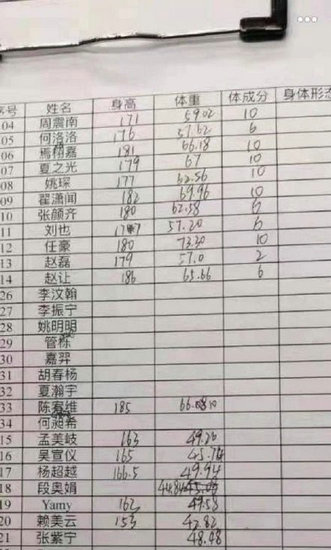 序号 姓名 身高 体重 体成分 身体形态
04 周震南 171 59.02 10
05 何洛洛 176 57.62 6
06 焉栩嘉 181 66.18 10
07 夏之光 179 67 10
08 姚琛 177 62.56 10
09 翟潇闻 182 69.96 10
10 张颜齐 180 62.58 6
11 刘也 57.20 6
12 任豪 180 73.30 10
13 赵磊 179 57.0 2
14 赵让 186 65.66 6
26 李汶翰
27 李振宁
28 姚明明
29 管栎
30 嘉羿
31 胡春杨
32 夏瀚宇
33 陈宥维 185
34 何昶希
15 孟美岐 163 49.26
16 吴宣仪 165
17 杨超越 166.5 49.94
18 段奥娟
19 Yamy 162 49.58
20 赖美云 153 47.82
21 张紫宁 48.48